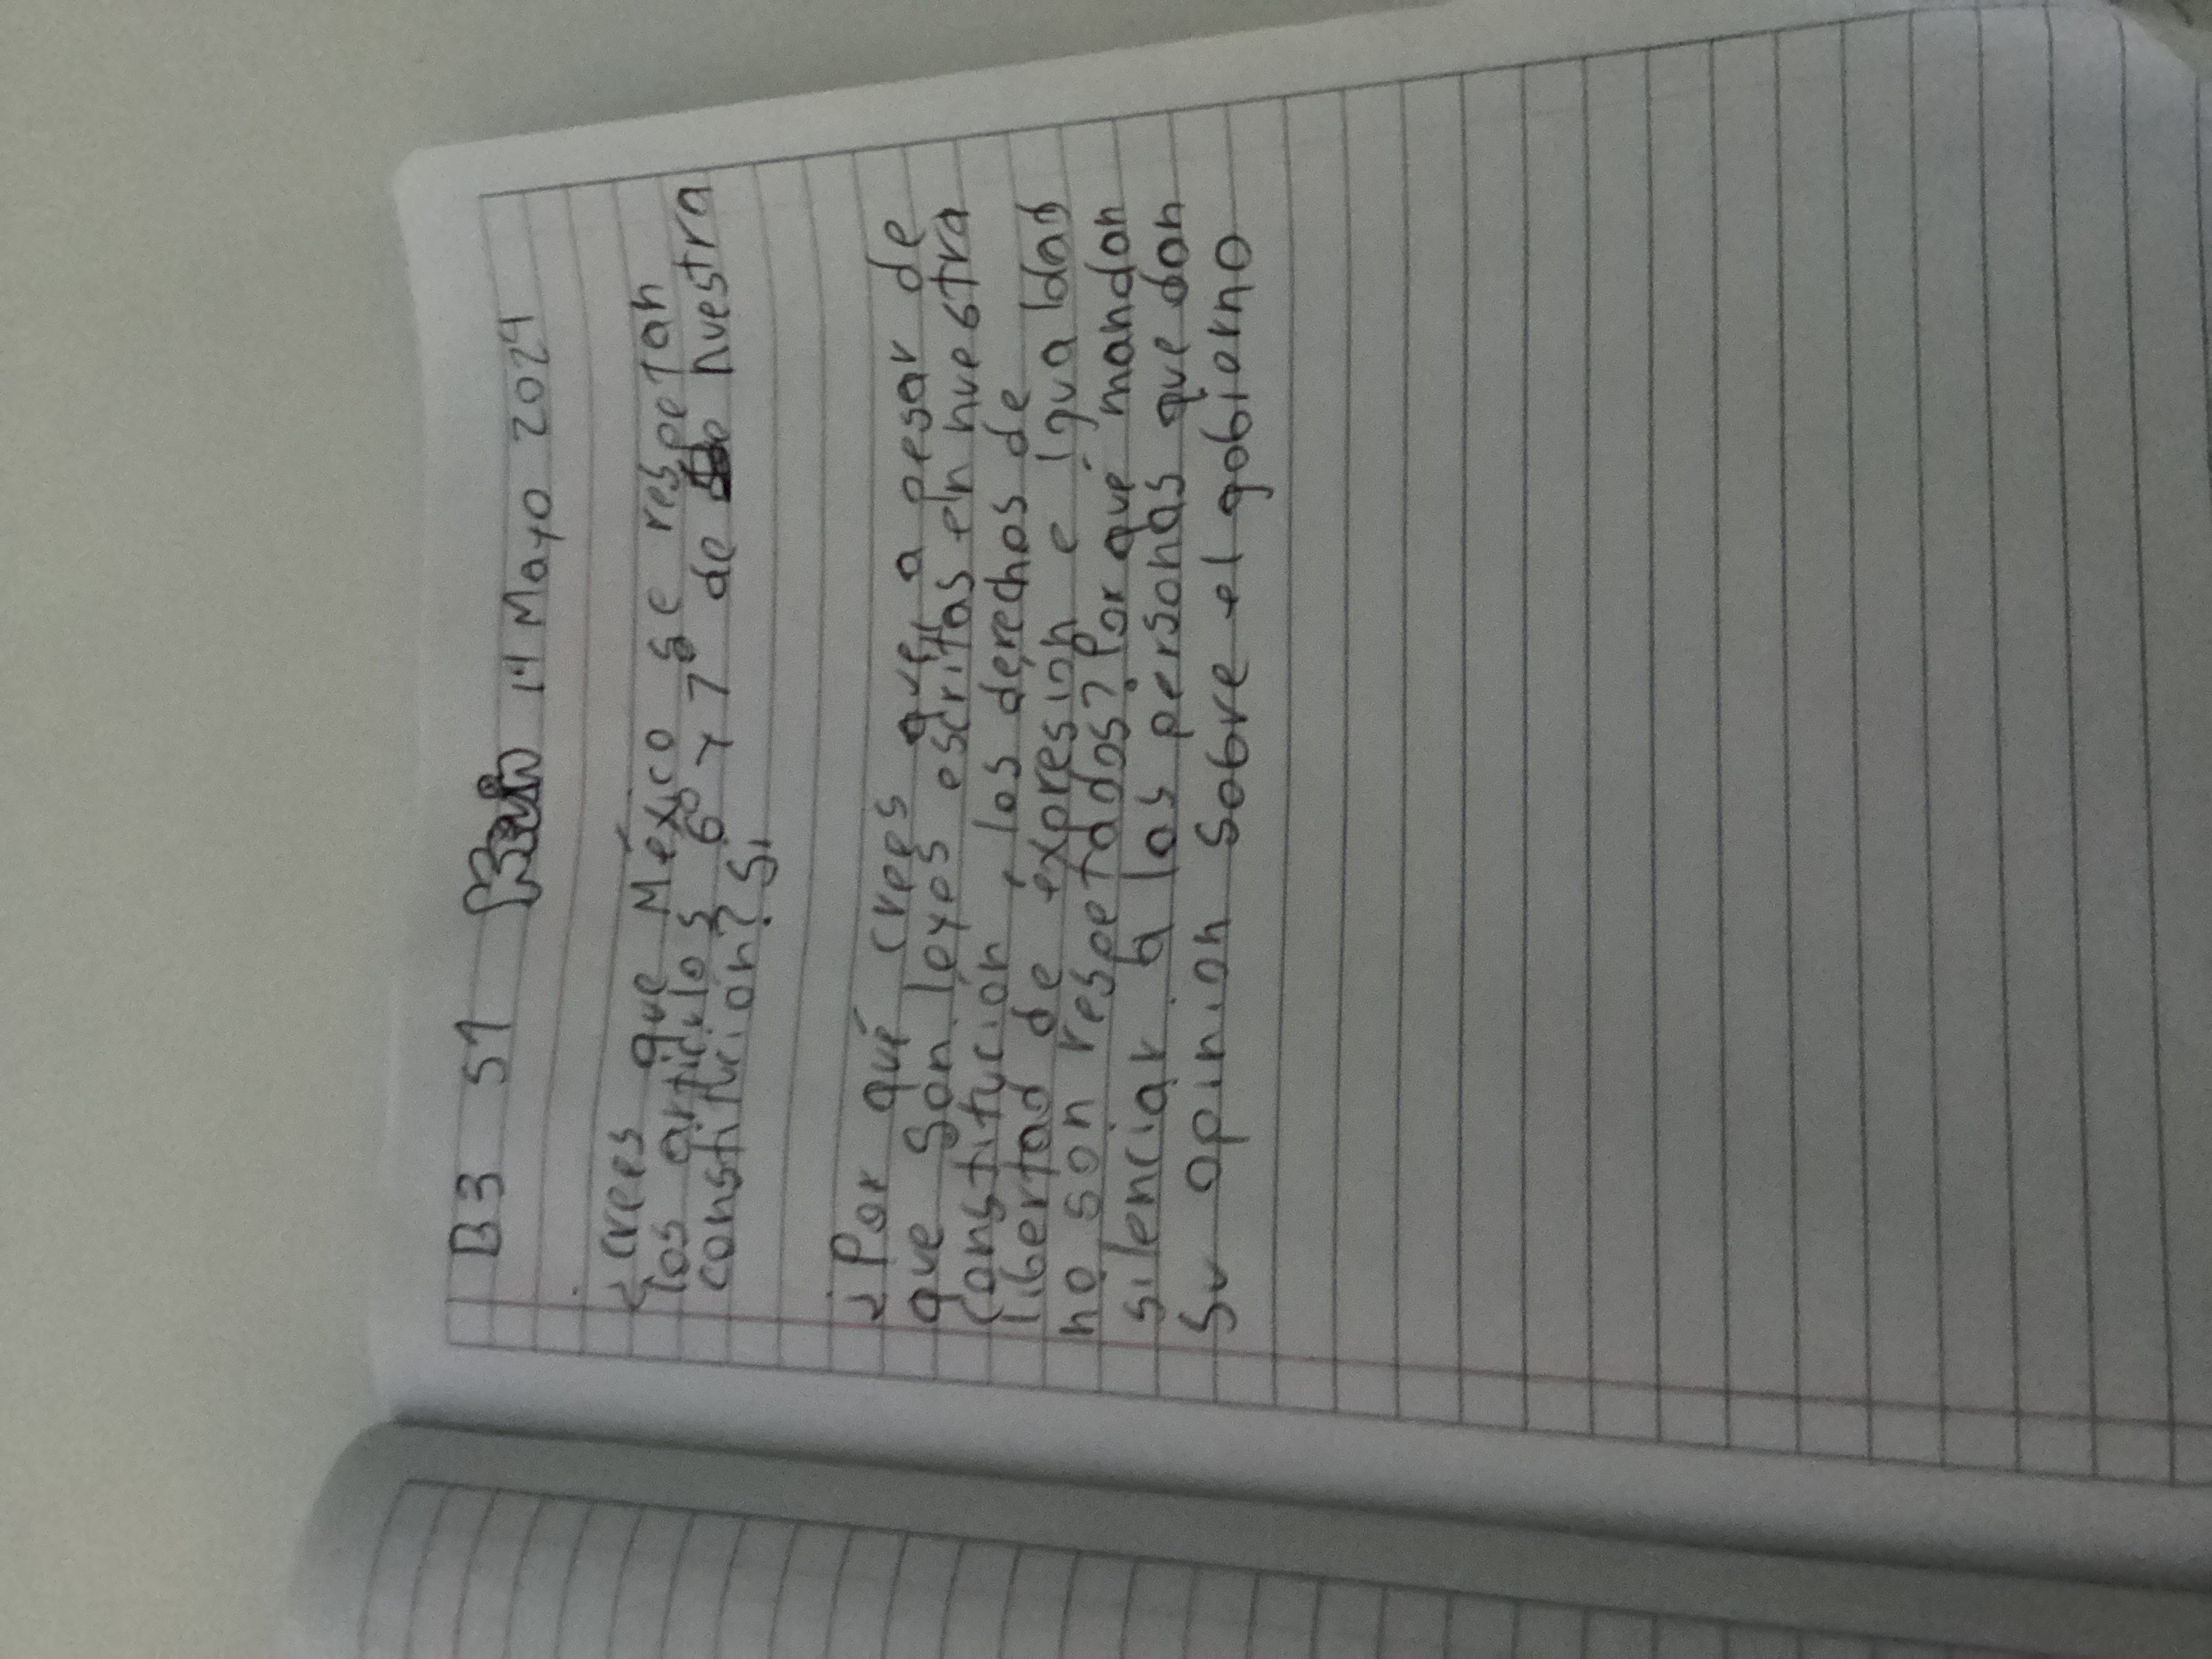 B3 S1 14 Mayo 2024
¿Crees que México se respetan
los artículos 6° y 7° de nuestra
constitución? Si
¿Por qué crees que a pesar de
que son leyes escritas en nuestra
Constitución, los derechos de
libertad de expresion e igualdad
no son respetados? Por que mandan
silenciar a las personas que dan
su opinion sobre el gobierno